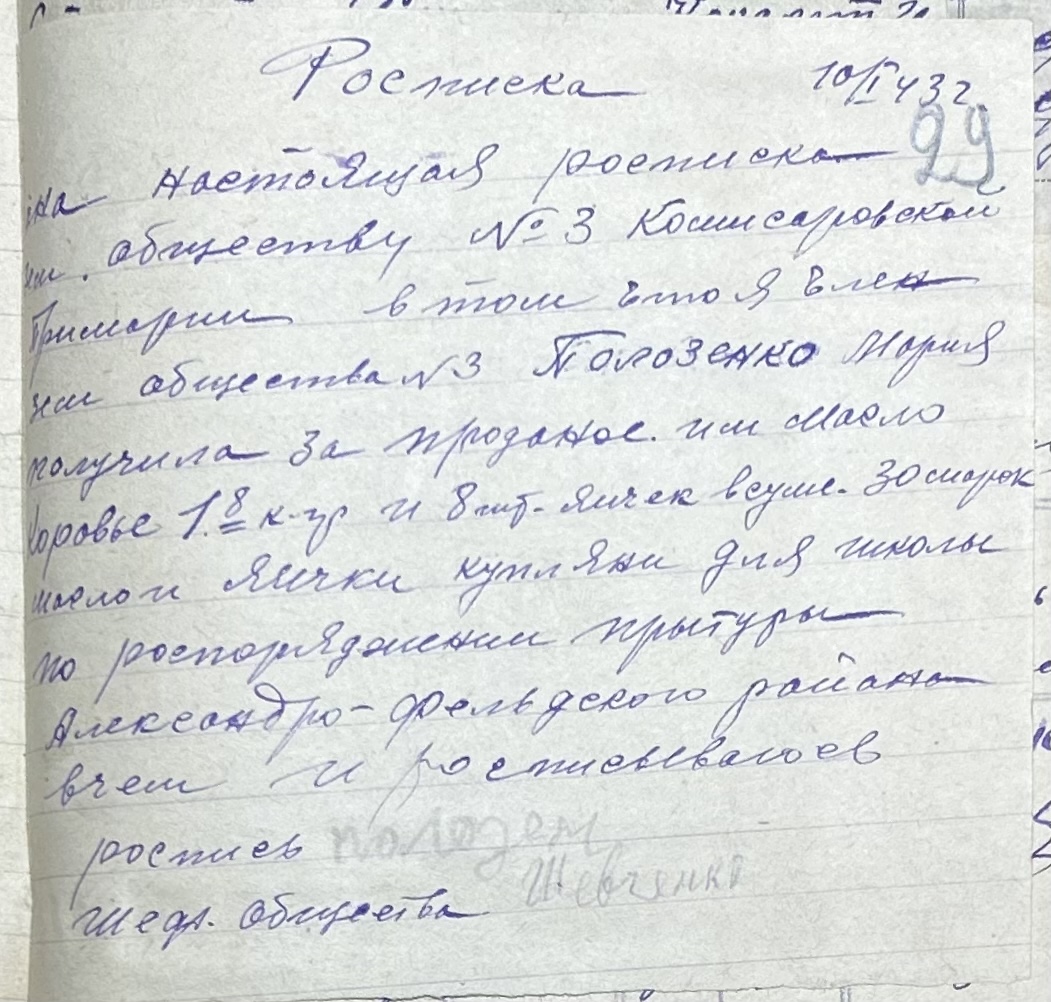 Росписка 10/I 43 г
29
на настоящая росписка
зем. обществу № 3 Комисаровской
Примарии в том что я член
зем общества № 3 Полозенко Мария
получила за проданое. им масло
коровье 1.8 к-гр и 8 шт. яичек всум. 30 марок
масло и яички купляни для школы
по роспоряджении прытуры
Александро-Фельдского района
вчем и росписываюсь
роспись полозен
Шевченко
общества